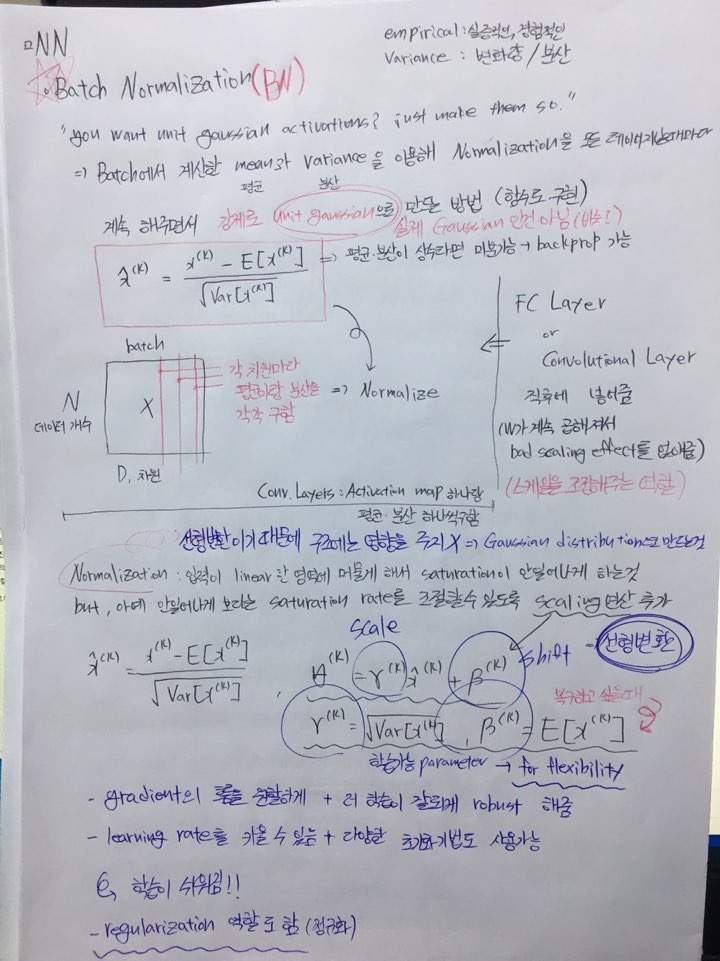 □NN
empirical : 실증적인, 경험적인
Variance : 변화량 / 분산
☆. Batch Normalization (BN)
"you want unit gaussian activations? just make them so."
⇒ Batch에서 계산한 mean와 variance을 이용해 Normalization을 모든 레이어 지날때마다
평균 분산
계속 해주면서 강제로 unit gaussian으로 만들 방법 (함수로 구현)
실제 Gaussian 인건 아님 (비슷?)
x̂^(k) = (x^(k) - E[x^(k)]) / √Var[x^(k)] ⇒ 평균·분산이 상수라면 미분가능 → backprop 가능
batch
N
데이터 개수
X
D, 차원
각 차원마다
평균이랑 분산을
각각 구함
⇒ Normalize
⇐ FC Layer
or
Convolutional Layer
직후에 넣어줌
(W가 계속 곱해져서
bad scaling effect를 없애줌)
(스케일을 조정해주는 역할)
Conv. Layers : Activation map 하나당
평균·분산 하나씩 구함
선형변환이기 때문에 구조에는 영향을 주지 X ⇒ Gaussian distribution으로 만드는것
Normalization : 입력이 linear한 영역에 머물게 해서 saturation이 안일어나게 하는것
but, 아예 안일어나게 보다는 saturation rate를 조절할수 있도록 scaling 연산 추가
x̂^(k) = (x^(k) - E[x^(k)]) / √Var[x^(k)] ,
scale
y^(k) = γ^(k) x̂^(k) + β^(k)
shift - 선형변환
γ^(k) = √Var[x^(k)] , β^(k) = E[x^(k)]
복구하고 싶을때
학습가능 parameter → for flexibility
- gradient의 흐름을 원활하게 + 더 학습이 잘되게 robust 해줌
- learning rate를 키울 수 있음 + 다양한 초기화기법도 사용가능
학습이 쉬워짐!!
- regularization 역할도 함 (정규화)